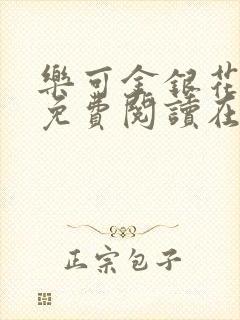 樂可金銀花
免費閱讀在
正宗包子